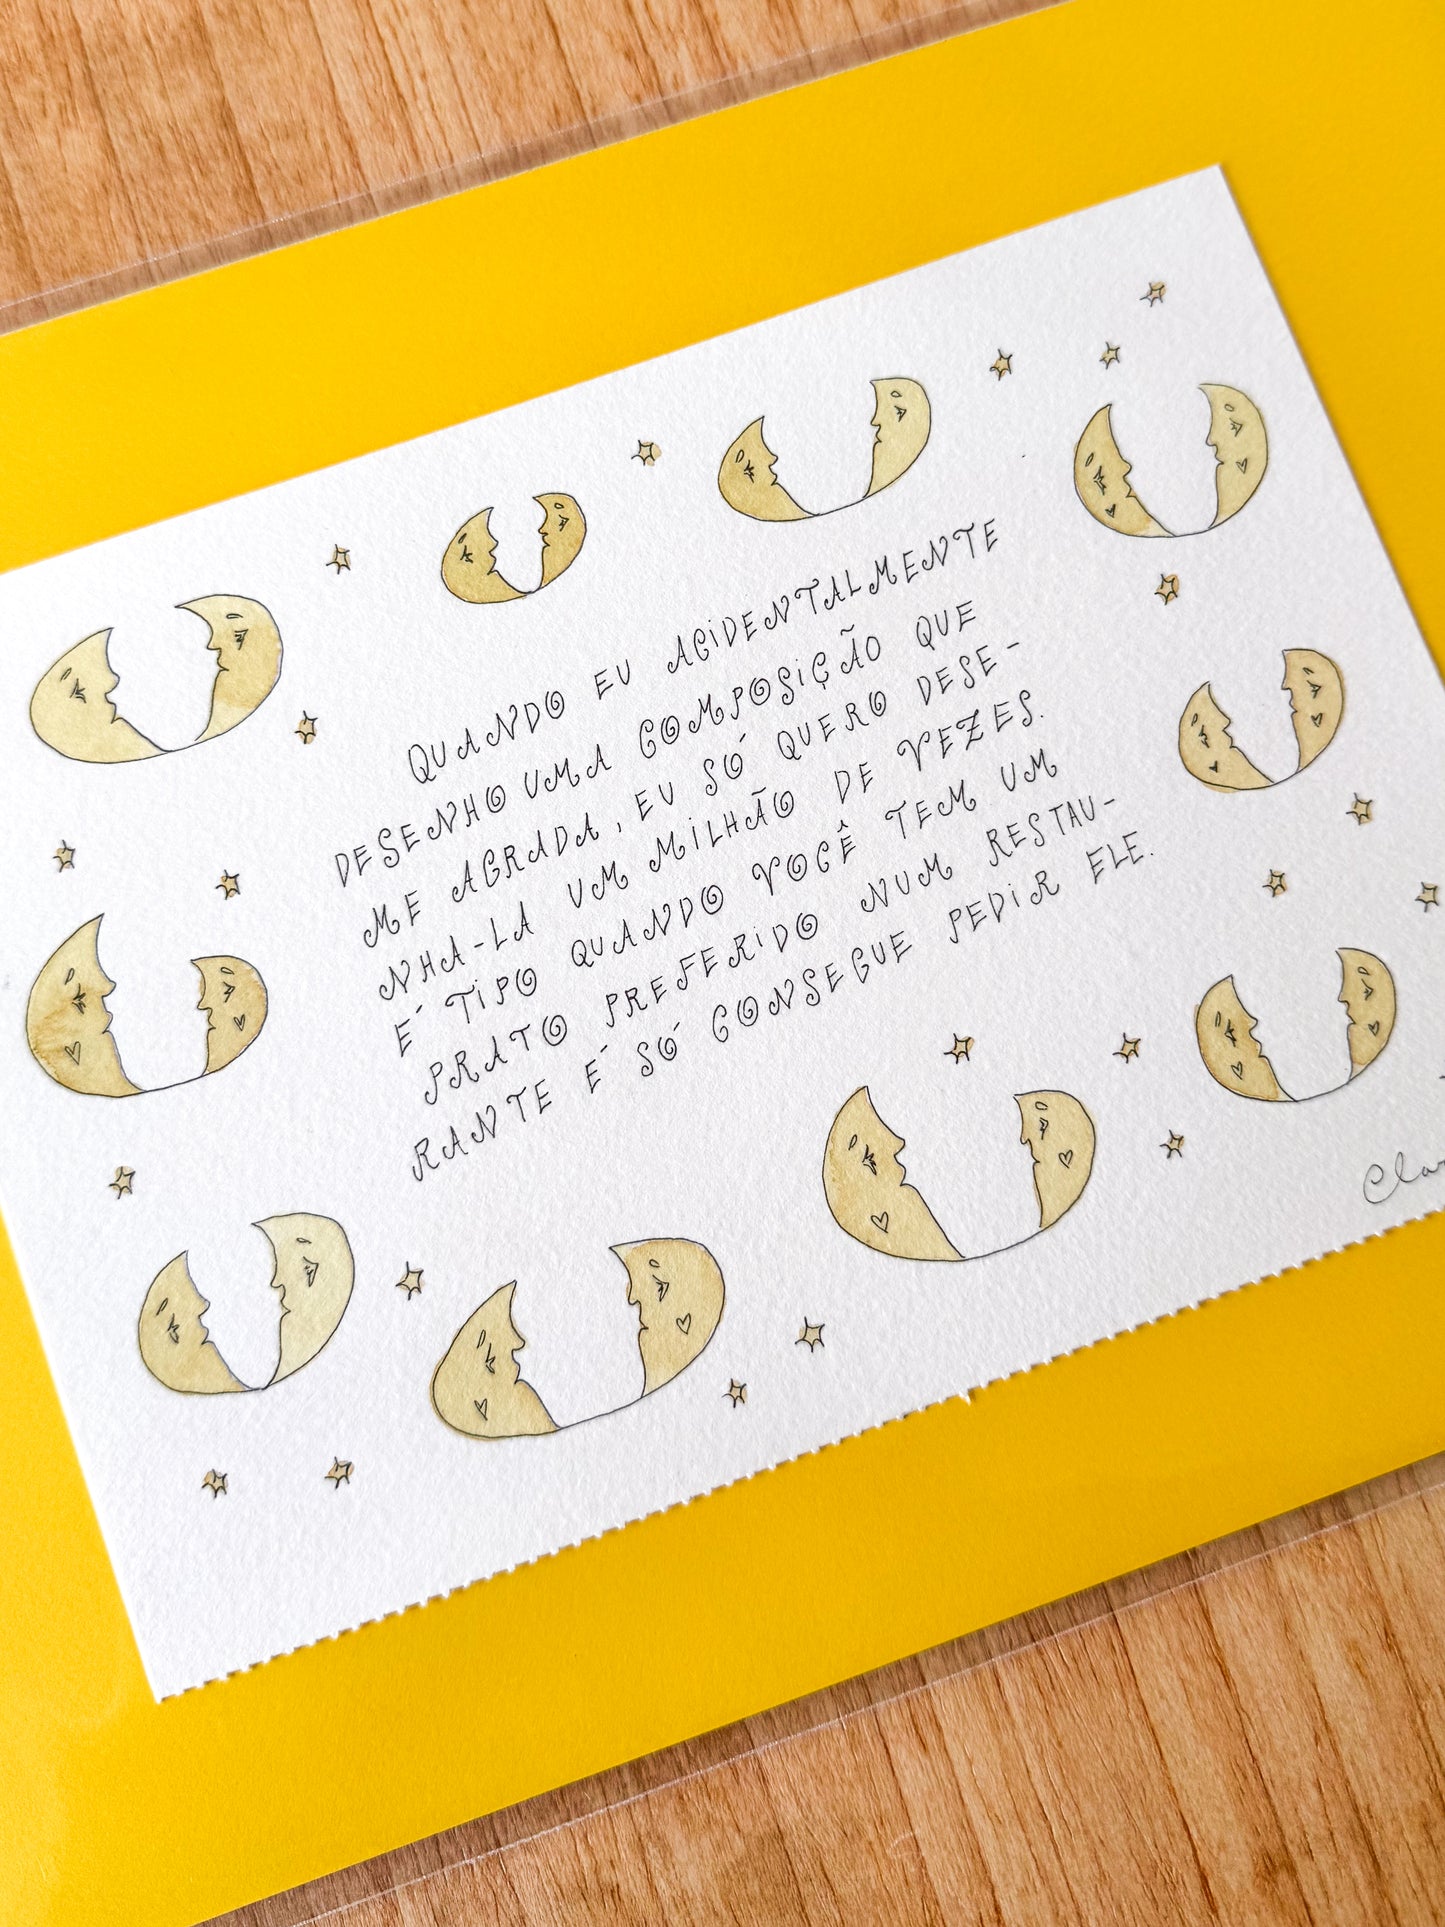 QUANDO EU ACIDENTALMENTE
DESENHO UMA COMPOSIÇÃO QUE
ME AGRADA, EU SÓ QUERO DESE-
NHA-LA UM MILHÃO DE VEZES.
É TIPO QUANDO VOCÊ TEM UM
PRATO PREFERIDO NUM RESTAU-
RANTE E SÓ CONSEGUE PEDIR ELE.